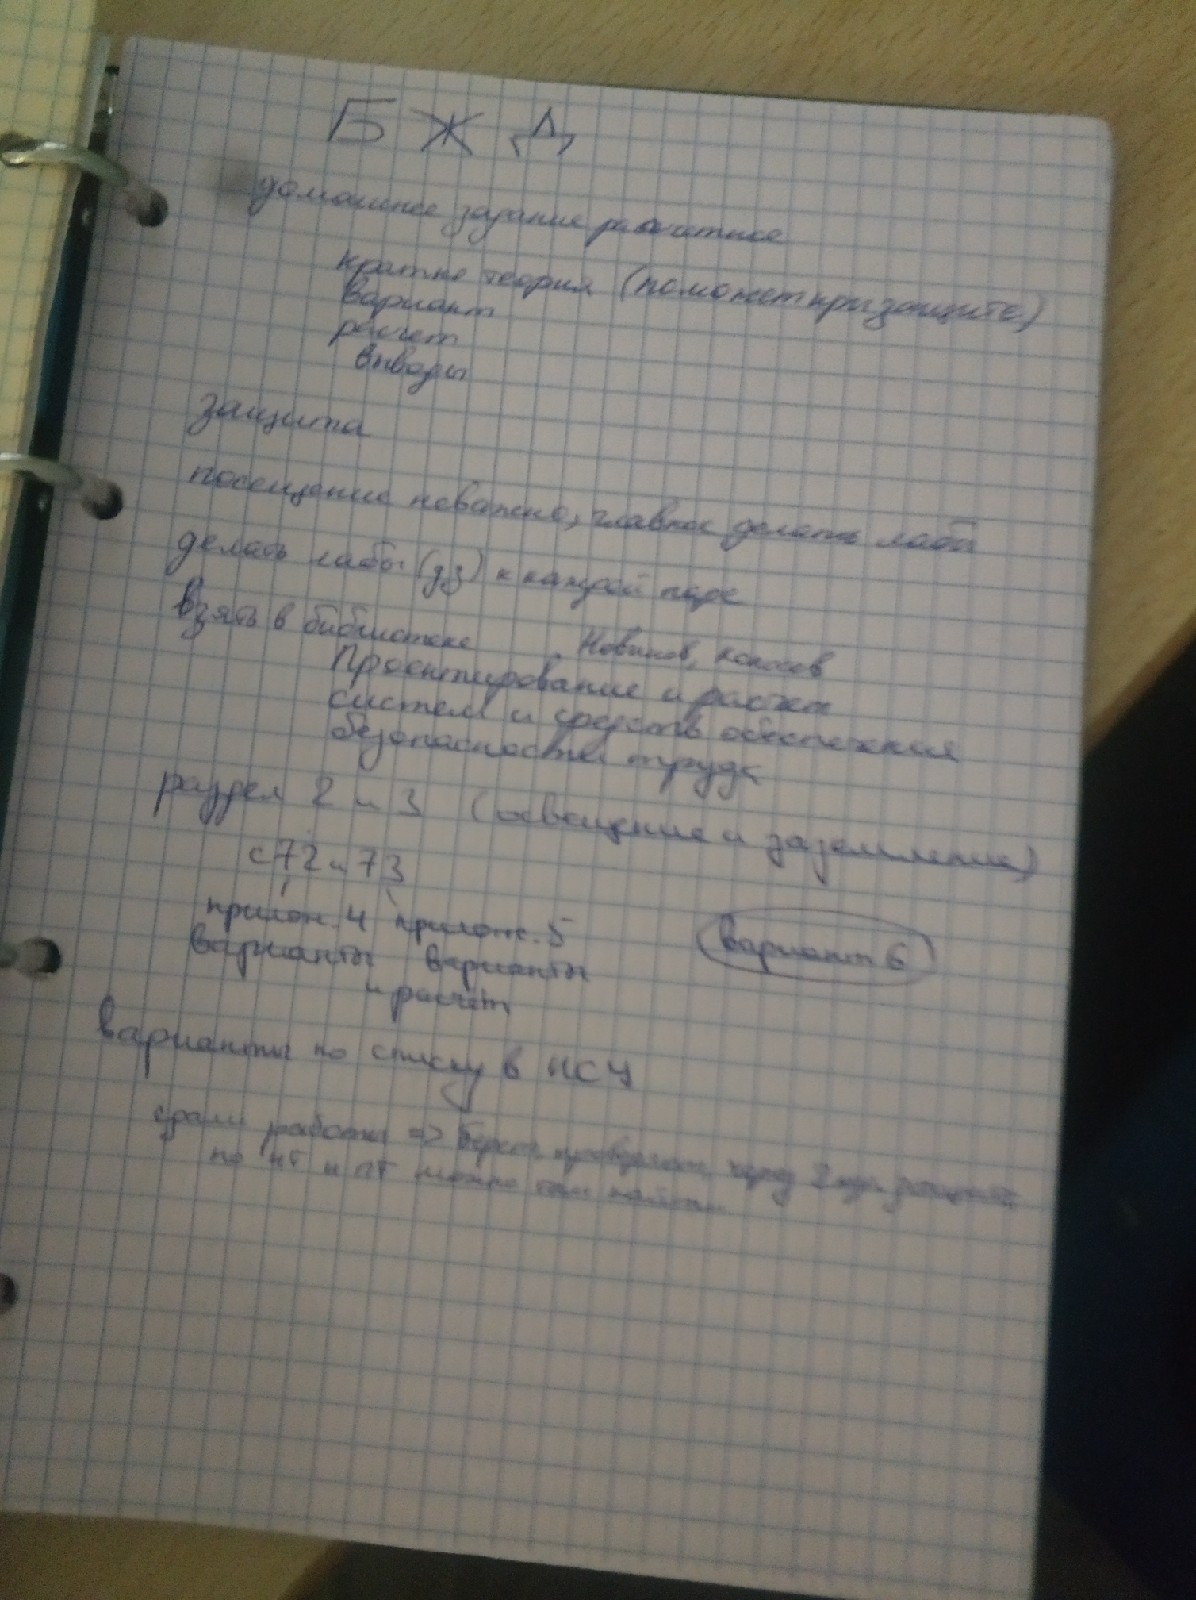 БЖД
домашнее задание расчетное
кратко теория (поможет при защите)
вариант
расчет
выводы
защита
посещение неважно, главное делать лабы
делать лабы (дз) к каждой паре
взять в библиотеке Новиков,
Проектирование и расчет
систем и средств обеспечения
безопасности труда
раздел 2 и 3 (освещение и заземление)
с 72 и 73
прилож. 4 прилож. 5
варианты варианты
и расчёт
вариант 6
варианты по списку в ИСУ
сдали работы =>
по и можно там найти